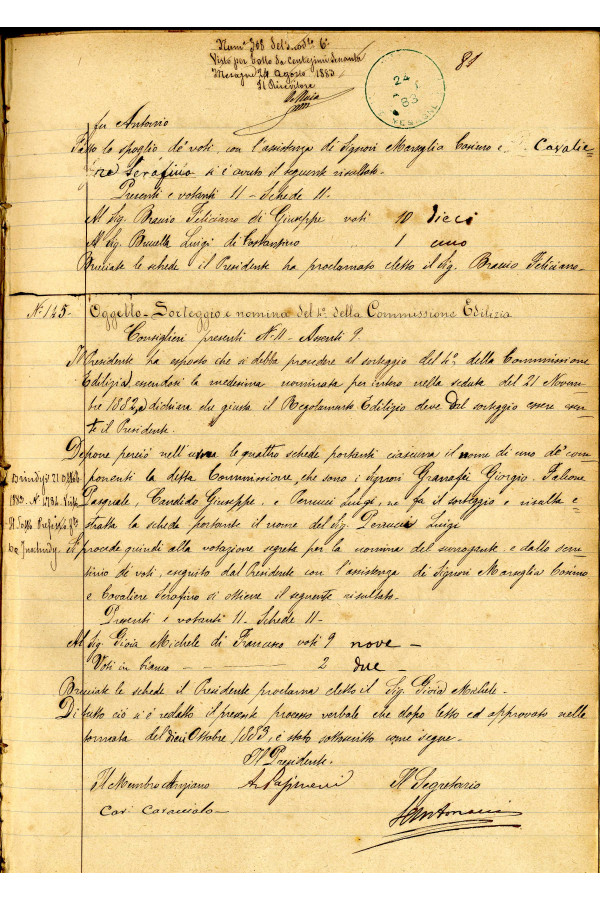 Num° 708 del
Visto per bollo da centesimi sessanta
Mesagne 24 Agosto 1883
Il Ricevitore
81
24
83
MESAGNE
fu Antonio
Fatto lo spoglio de' voti con l'assistenza di Signori Marsiglia Cosimo e Cavalie-
re Serafino si è avuto il seguente risultato.
Presenti e votanti 11 - Schede 11 -
Al Sig. Braccio Feliciano di Giuseppe voti 10 dieci
Al Sig. Brunetta Luigi di Costantino 1 uno
Bruciate le schede il Presidente ha proclamato eletto il Sig. Braccio Feliciano -
N.° 145 - Oggetto - Sorteggio e nomina del 4° della Commissione Edilizia
Consiglieri presenti N° 11 - Assenti 9
Il Presidente ha esposto che si debba procedere al sorteggio del 4° della Commissione
Edilizia, essendosi la medesima nominata per intero nella seduta del 21 Novem-
bre 1882, e dichiara che giusta il Regolamento Edilizio deve dal sorteggio essere esen-
te il Presidente.
Depone perciò nell'urna le quattro schede portanti ciascuna il nome di uno de' com-
ponenti la detta Commissione, che sono i Signori Granafei Giorgio, Falcone
Pasquale, Candido Giuseppe, e Perrucci Luigi, ne fa il sorteggio e risulta e-
stratta la scheda portante il nome del Sig. Perrucci Luigi
Brindisi 21 Ottob.
1883. N° 1734. Visto
Il Sotto Prefetto
Si procede quindi alla votazione segreta per la nomina del surrogante, e dallo scru-
tinio di voti, eseguito dal Presidente con l'assistenza di Signori Marsiglia Cosimo
e Cavaliere Serafino si ottiene il seguente risultato -
Presenti e votanti 11 - Schede 11 -
Al Sig. Gioia Michele di Francesco voti 9 nove -
Voti in bianco - 2 due -
Bruciate le schede il Presidente proclama eletto il Sig. Gioia Michele -
Di tutto ciò si è redatto il presente processo verbale che dopo letto ed approvato nella
tornata del dieci Ottobre 1883, è stato sottoscritto come segue -
Il Presidente.
Il Membro Anziano
Il Segretario
Cav. Caracciolo -